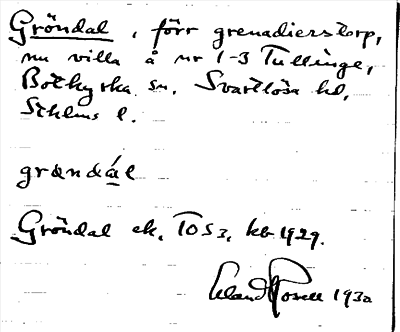 Gröndal, förr grenadierstorp,
nu villa å nr 1-3 Tullinge,
Botkyrka sn, Svartlösa hd,
Sthlms l.
grøndál
Gröndal ek, TOS3, kb 1929.
Erland Rosell 1930